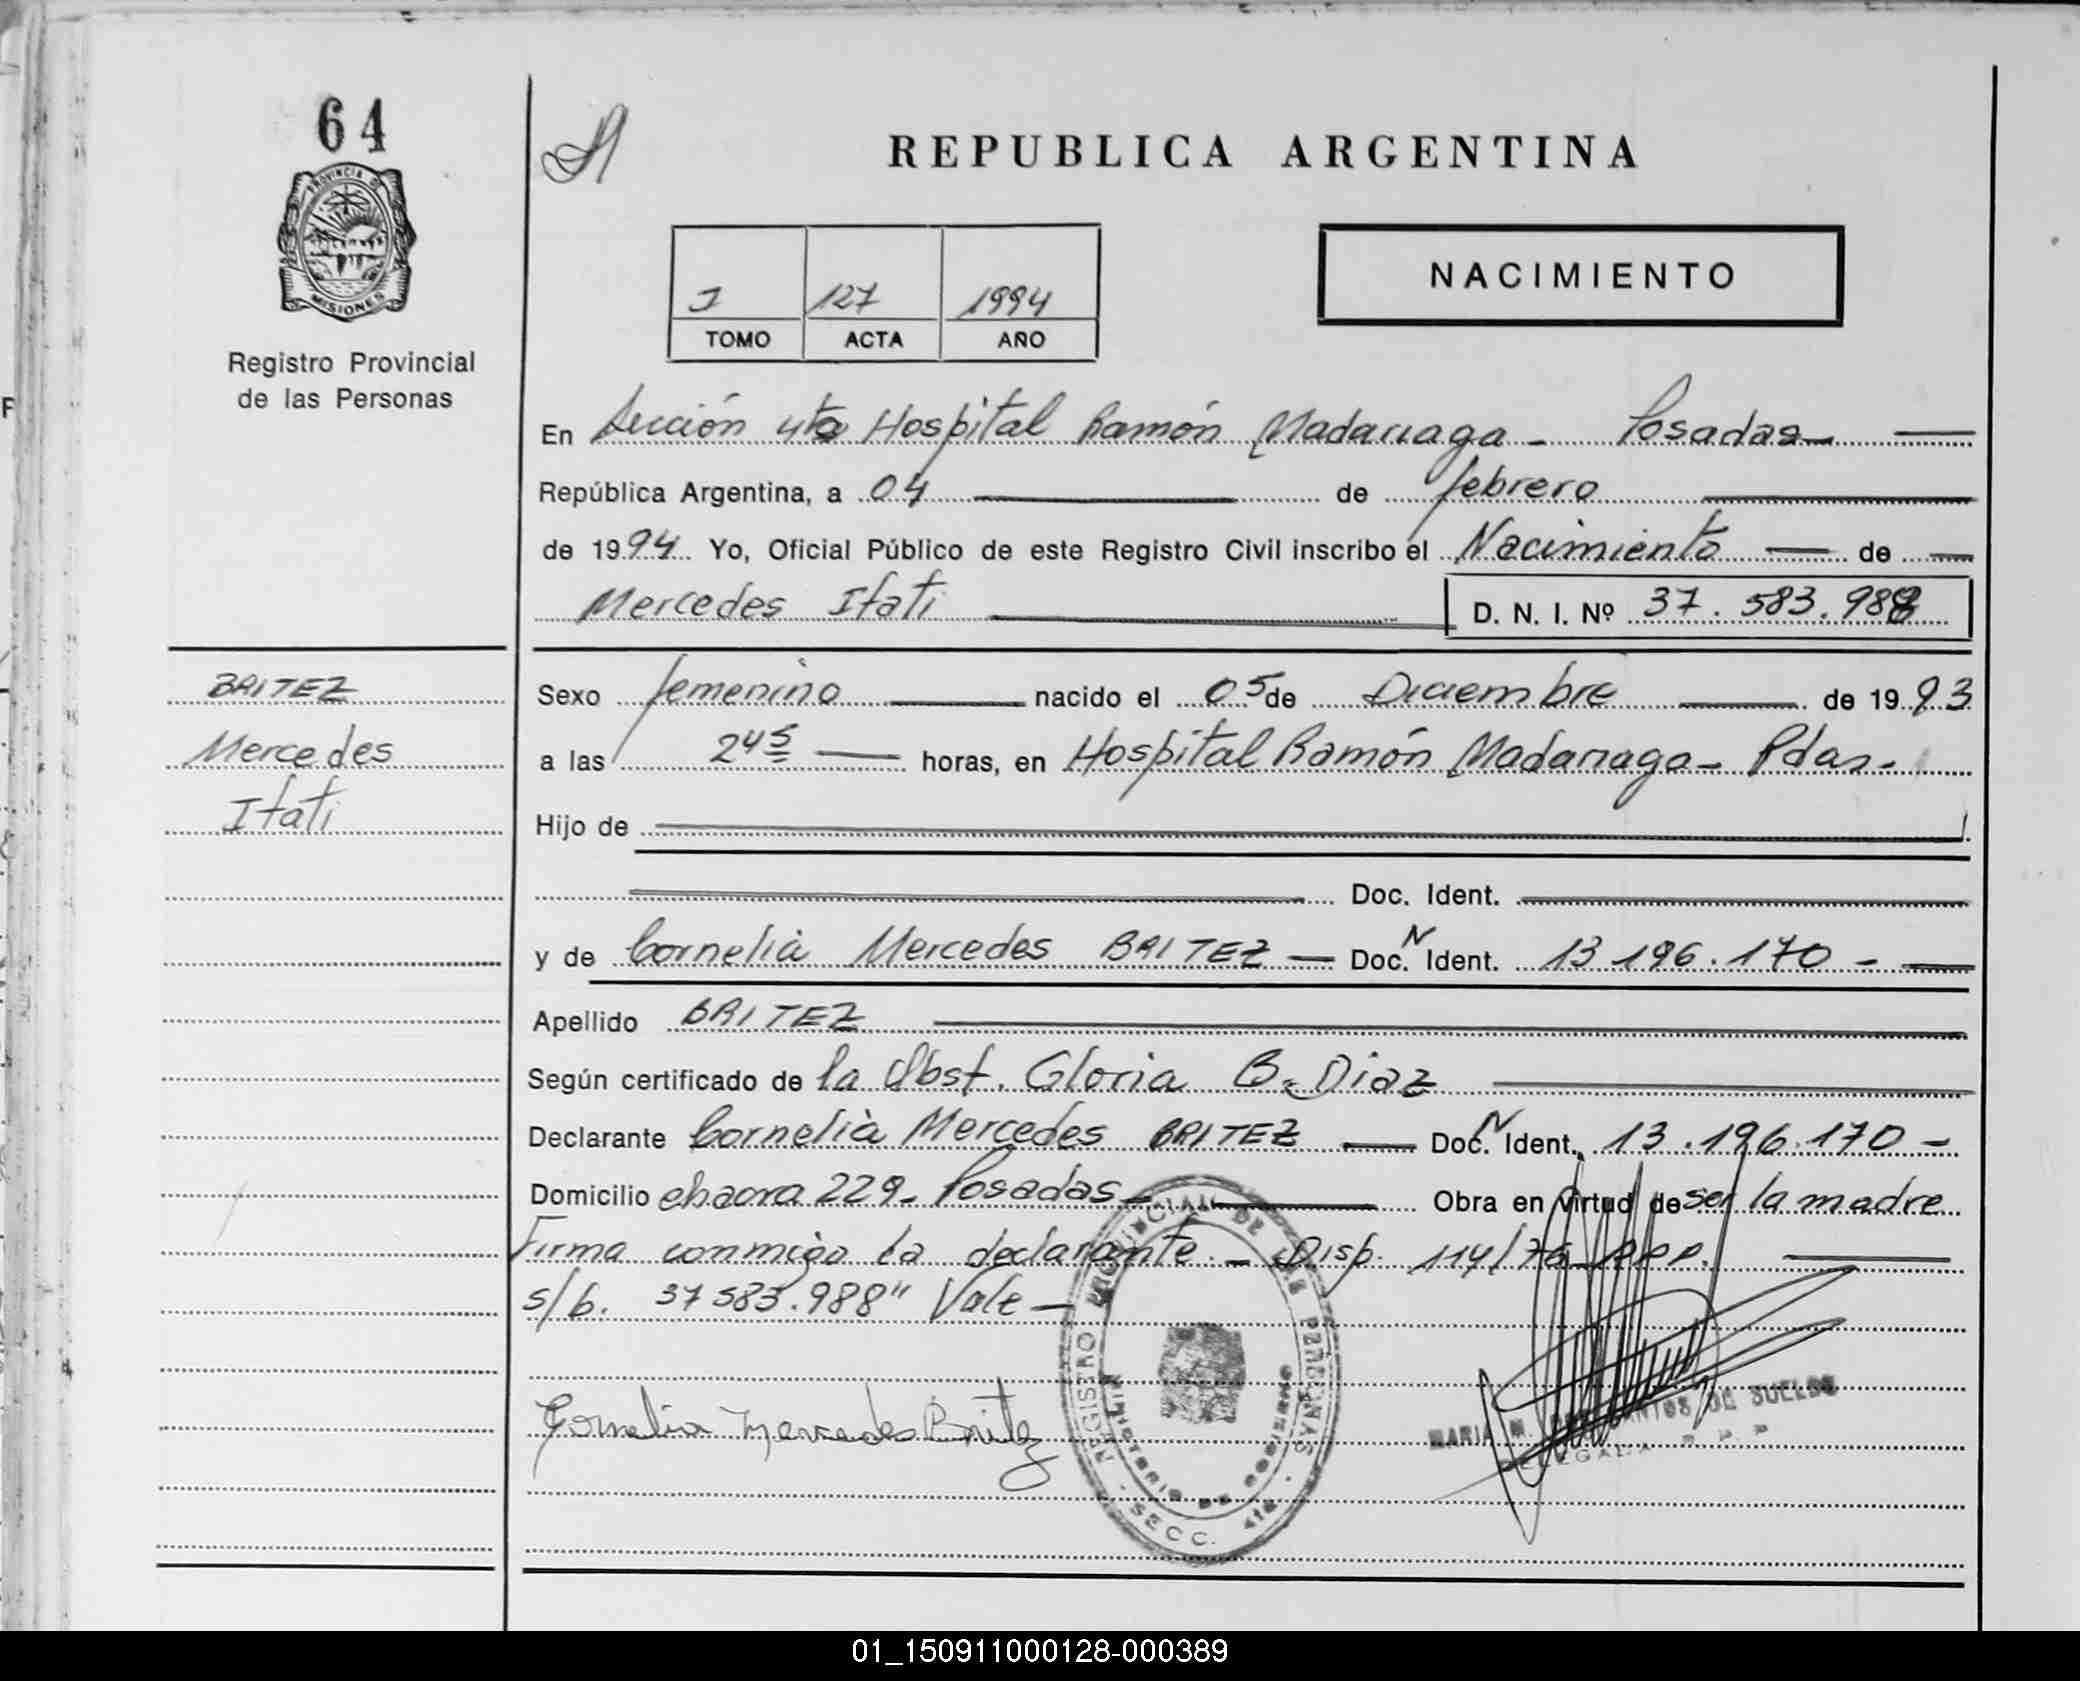 64
PROVINCIA DE
MISIONES
Registro Provincial
de las Personas
BRITEZ
Mercedes
Itati
REPUBLICA ARGENTINA
I 127 1994
TOMO ACTA AÑO
NACIMIENTO
En Sección 4ta Hospital Ramón Madariaga - Posadas
República Argentina, a 04 de febrero
de 1994 Yo, Oficial Público de este Registro Civil inscribo el Nacimiento de
Mercedes Itati D. N. I. Nº 37.583.988
Sexo femenino nacido el 05 de Diciembre de 1993
a las 24⁵ horas, en Hospital Ramón Madariaga - Pdas -
Hijo de
Doc. Ident.
y de Cornelia Mercedes BRITEZ Doc. N Ident. 13.196.170 -
Apellido BRITEZ
Según certificado de la Obst. Gloria B. Diaz
Declarante Cornelia Mercedes BRITEZ Doc. N Ident. 13.196.170 -
Domicilio chacra 229 - Posadas - Obra en virtud de ser la madre
Firma conmigo la declarante - Disp. 114/76 RPP.
s/b. 37583.988" Vale -
Cornelia Mercedes Britez
REGISTRO PROVINCIAL DE LAS PERSONAS
MINISTERIO DE GOBIERNO
SECC. 4ta
MARIA M. SANTOS DE SUELDO
DELEGADA R. P. P.
01_150911000128-000389